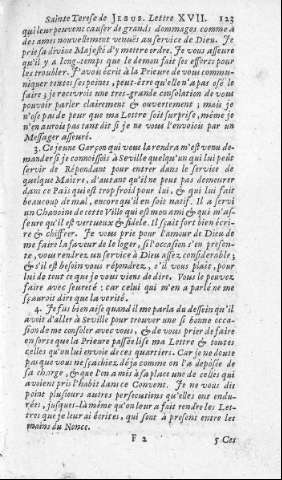 Sainte Terese de JESUS. Lettre XVII. 123
qui leur peuvent causer de grands dommages comme à
des ames nouvellement venuës au service de Dieu. Je
prie sa divine Majesté d'y mettre ordre. Je vous asseure
qu'il y a long-temps que le demon fait ses efforts pour
les troubler. J'avois écrit à la Prieure de vous commu-
niquer toutes ses peines, peut-être qu'elle n'a pas osé le
faire; je recevrois une tres-grande consolation de vous
pouvoir parler clairement & ouvertement; mais je
n'ose pas de peur que ma Lettre soit surprise, même je
n'en aurois pas tant dit si je ne vous l'envoiois par un
Messager asseuré.
3. Ce jeune Garçon qui vous la rendra m'est venu de-
mander si je connoissois à Seville quelqu'un qui lui peut
servir de Répondant pour entrer dans le service de
quelque Maître, d'autant qu'il ne peut pas demeurer
dans ce Païs qui est trop froid pour lui, & qui lui fait
beaucoup de mal, encor qu'il en soit natif. Il a servi
un Chanoine de cette Ville qui est mon ami & qui m'as-
seure qu'il est vertueux & fidele. Il sçait fort bien écri-
re & chiffrer. Je vous prie pour l'amour de Dieu de
me faire la faveur de le loger, si l'occasion s'en presen-
te, vous rendrez un service à Dieu assez considerable;
& s'il est besoin vous répondrez, s'il vous plait, pour
lui de tout ce que je vous viens de dire. Vous le pouvez
faire avec seureté: car celui qui m'en a parlé ne me
sçauroit dire que la verité.
4. Je fus bien aise quand il me parla du dessein qu'il
avoit d'aller à Seville pour trouver une si bonne occa-
sion de me consoler avec vous, & de vous prier de faire
en sorte que la Prieure passée lise ma Lettre & toutes
celles qu'on lui envoie de ces quartiers. Car je ne doute
pas que vous ne sçachiez déja comme on l'a deposée de
sa charge, & que l'on a mis à sa place une de celles qui
avoient pris l'habit dans ce Convent. Je ne vous dit
point plusieurs autres persecutions qu'elles ont endu-
rées, jusques-là même qu'on leur a fait rendre les Let-
tres que je leur ai écrites, qui sont à present entre les
mains du Nonce.
F 2 5 Ces